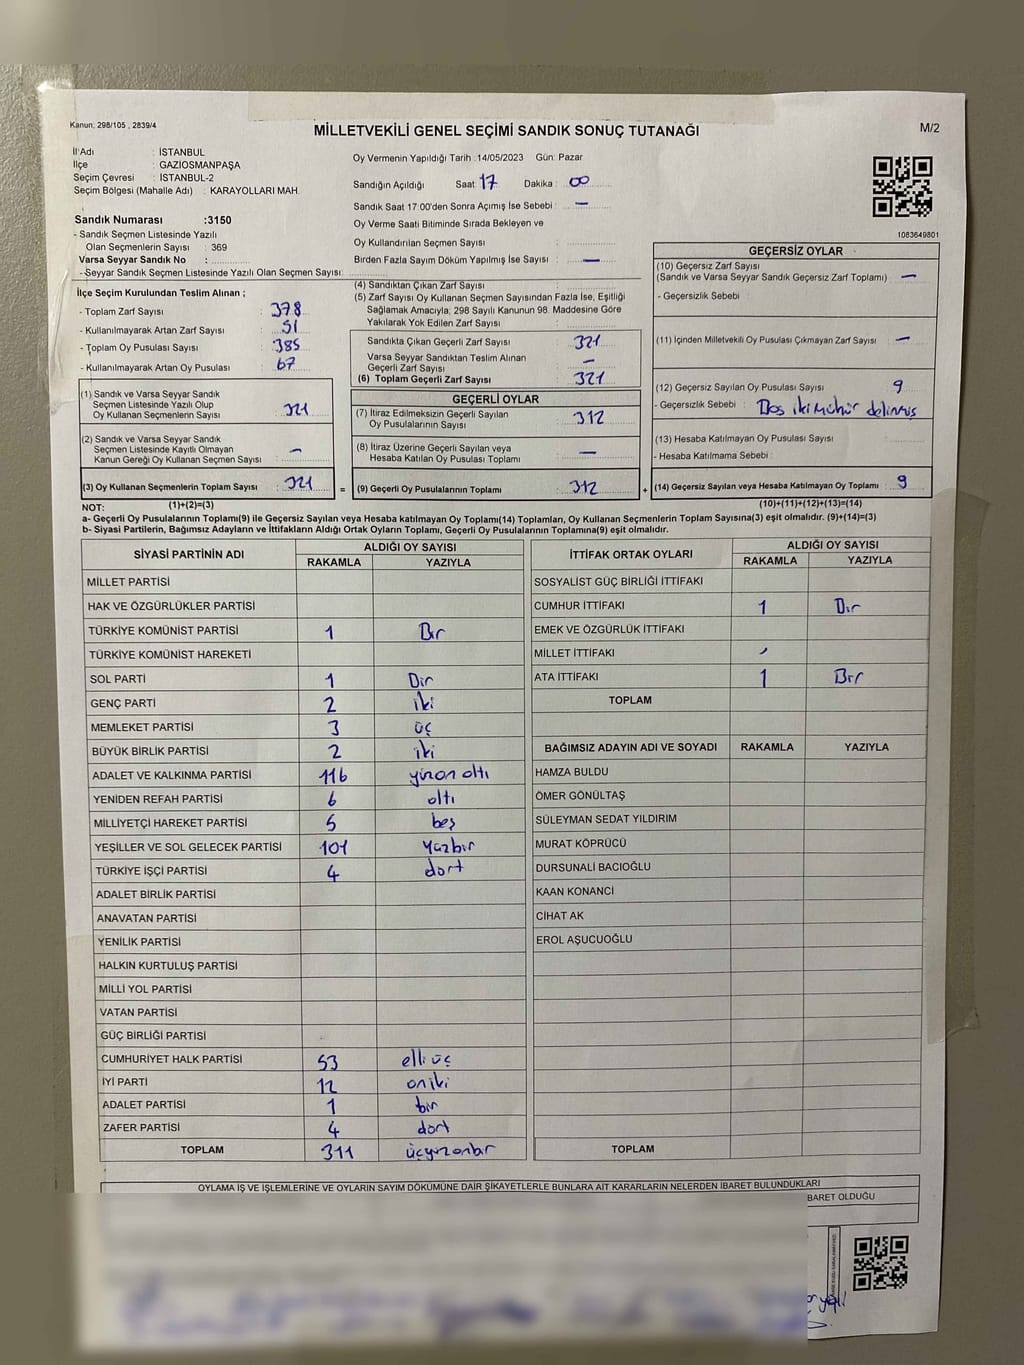 Kanun: 298/105 , 2839/4
MİLLETVEKİLİ GENEL SEÇİMİ SANDIK SONUÇ TUTANAĞI
M/2
İl Adı : İSTANBUL
İlçe : GAZİOSMANPAŞA
Seçim Çevresi : İSTANBUL-2
Seçim Bölgesi (Mahalle Adı) : KARAYOLLARI MAH.
Sandık Numarası :3150
- Sandık Seçmen Listesinde Yazılı
Olan Seçmenlerin Sayısı : 369
Varsa Seyyar Sandık No :
- Seyyar Sandık Seçmen Listesinde Yazılı Olan Seçmen Sayısı:
Oy Vermenin Yapıldığı Tarih :14/05/2023 Gün: Pazar
Sandığın Açıldığı Saat: 17 Dakika : 00
Sandık Saat 17:00'den Sonra Açımış İse Sebebi : —
Oy Verme Saati Bitiminde Sırada Bekleyen ve
Oy Kullandırılan Seçmen Sayısı :
Birden Fazla Sayım Döküm Yapılmış İse Sayısı : —
1083649801
İlçe Seçim Kurulundan Teslim Alınan ;
- Toplam Zarf Sayısı : 378
- Kullanılmayarak Artan Zarf Sayısı : 51
- Toplam Oy Pusulası Sayısı : 385
- Kullanılmayarak Artan Oy Pusulası : 67
(1) Sandık ve Varsa Seyyar Sandık
Seçmen Listesinde Yazılı Olup
Oy Kullanan Seçmenlerin Sayısı : 321
(2) Sandık ve Varsa Seyyar Sandık
Seçmen Listesinde Kayıtlı Olmayan
Kanun Gereği Oy Kullanan Seçmen Sayısı : —
(3) Oy Kullanan Seçmenlerin Toplam Sayısı : 321
(4) Sandıktan Çıkan Zarf Sayısı :
(5) Zarf Sayısı Oy Kullanan Seçmen Sayısından Fazla İse, Eşitliği
Sağlamak Amacıyla; 298 Sayılı Kanunun 98. Maddesine Göre
Yakılarak Yok Edilen Zarf Sayısı :
Sandıkta Çıkan Geçerli Zarf Sayısı : 321
Varsa Seyyar Sandıktan Teslim Alınan
Geçerli Zarf Sayısı : —
(6) Toplam Geçerli Zarf Sayısı : 321
GEÇERLİ OYLAR
(7) İtiraz Edilmeksizin Geçerli Sayılan
Oy Pusulalarının Sayısı : 312
(8) İtiraz Üzerine Geçerli Sayılan veya
Hesaba Katılan Oy Pusulası Toplamı : —
= (9) Geçerli Oy Pusulalarının Toplamı : 312
GEÇERSİZ OYLAR
(10) Geçersiz Zarf Sayısı
(Sandık ve Varsa Seyyar Sandık Geçersiz Zarf Toplamı) : —
- Geçersizlik Sebebi :
(11) İçinden Milletvekili Oy Pusulası Çıkmayan Zarf Sayısı : —
(12) Geçersiz Sayılan Oy Pusulası Sayısı : 9
- Geçersizlik Sebebi : iki mühür
(13) Hesaba Katılmayan Oy Pusulası Sayısı :
- Hesaba Katılmama Sebebi :
+ (14) Geçersiz Sayılan veya Hesaba Katılmayan Oy Toplamı : 9
NOT: (1)+(2)=(3)
(10)+(11)+(12)+(13)=(14)
a- Geçerli Oy Pusulalarının Toplamı(9) ile Geçersiz Sayılan veya Hesaba katılmayan Oy Toplamı(14) Toplamları, Oy Kullanan Seçmenlerin Toplam Sayısına(3) eşit olmalıdır. (9)+(14)=(3)
b- Siyasi Partilerin, Bağımsız Adayların ve İttifakların Aldığı Ortak Oyların Toplamı, Geçerli Oy Pusulalarının Toplamına(9) eşit olmalıdır.
SİYASİ PARTİNİN ADI ALDIĞI OY SAYISI
RAKAMLA YAZIYLA
MİLLET PARTİSİ
HAK VE ÖZGÜRLÜKLER PARTİSİ
TÜRKİYE KOMÜNİST PARTİSİ 1 Bir
TÜRKİYE KOMÜNİST HAREKETİ
SOL PARTİ 1 Bir
GENÇ PARTİ 2 iki
MEMLEKET PARTİSİ 3 üç
BÜYÜK BİRLİK PARTİSİ 2 iki
ADALET VE KALKINMA PARTİSİ 116 yüzon altı
YENİDEN REFAH PARTİSİ 6 altı
MİLLİYETÇİ HAREKET PARTİSİ 5 beş
YEŞİLLER VE SOL GELECEK PARTİSİ 101 Yüzbir
TÜRKİYE İŞÇİ PARTİSİ 4 dört
ADALET BİRLİK PARTİSİ
ANAVATAN PARTİSİ
YENİLİK PARTİSİ
HALKIN KURTULUŞ PARTİSİ
MİLLİ YOL PARTİSİ
VATAN PARTİSİ
GÜÇ BİRLİĞİ PARTİSİ
CUMHURİYET HALK PARTİSİ 53 elli üç
İYİ PARTİ 12 oniki
ADALET PARTİSİ 1 bir
ZAFER PARTİSİ 4 dört
TOPLAM 311 üçyüzonbir
İTTİFAK ORTAK OYLARI ALDIĞI OY SAYISI
RAKAMLA YAZIYLA
SOSYALİST GÜÇ BİRLİĞİ İTTİFAKI
CUMHUR İTTİFAKI 1 Bir
EMEK VE ÖZGÜRLÜK İTTİFAKI
MİLLET İTTİFAKI
ATA İTTİFAKI 1 Bir
TOPLAM
BAĞIMSIZ ADAYIN ADI VE SOYADI RAKAMLA YAZIYLA
HAMZA BULDU
ÖMER GÖNÜLTAŞ
SÜLEYMAN SEDAT YILDIRIM
MURAT KÖPRÜCÜ
DURSUNALİ BACIOĞLU
KAAN KONANCİ
CİHAT AK
EROL AŞUCUOĞLU
TOPLAM
OYLAMA İŞ VE İŞLEMLERİNE VE OYLARIN SAYIM DÖKÜMÜNE DAİR ŞİKAYETLERLE BUNLARA AİT KARARLARIN NELERDEN İBARET BULUNDUKLARI
BARET OLDUĞU